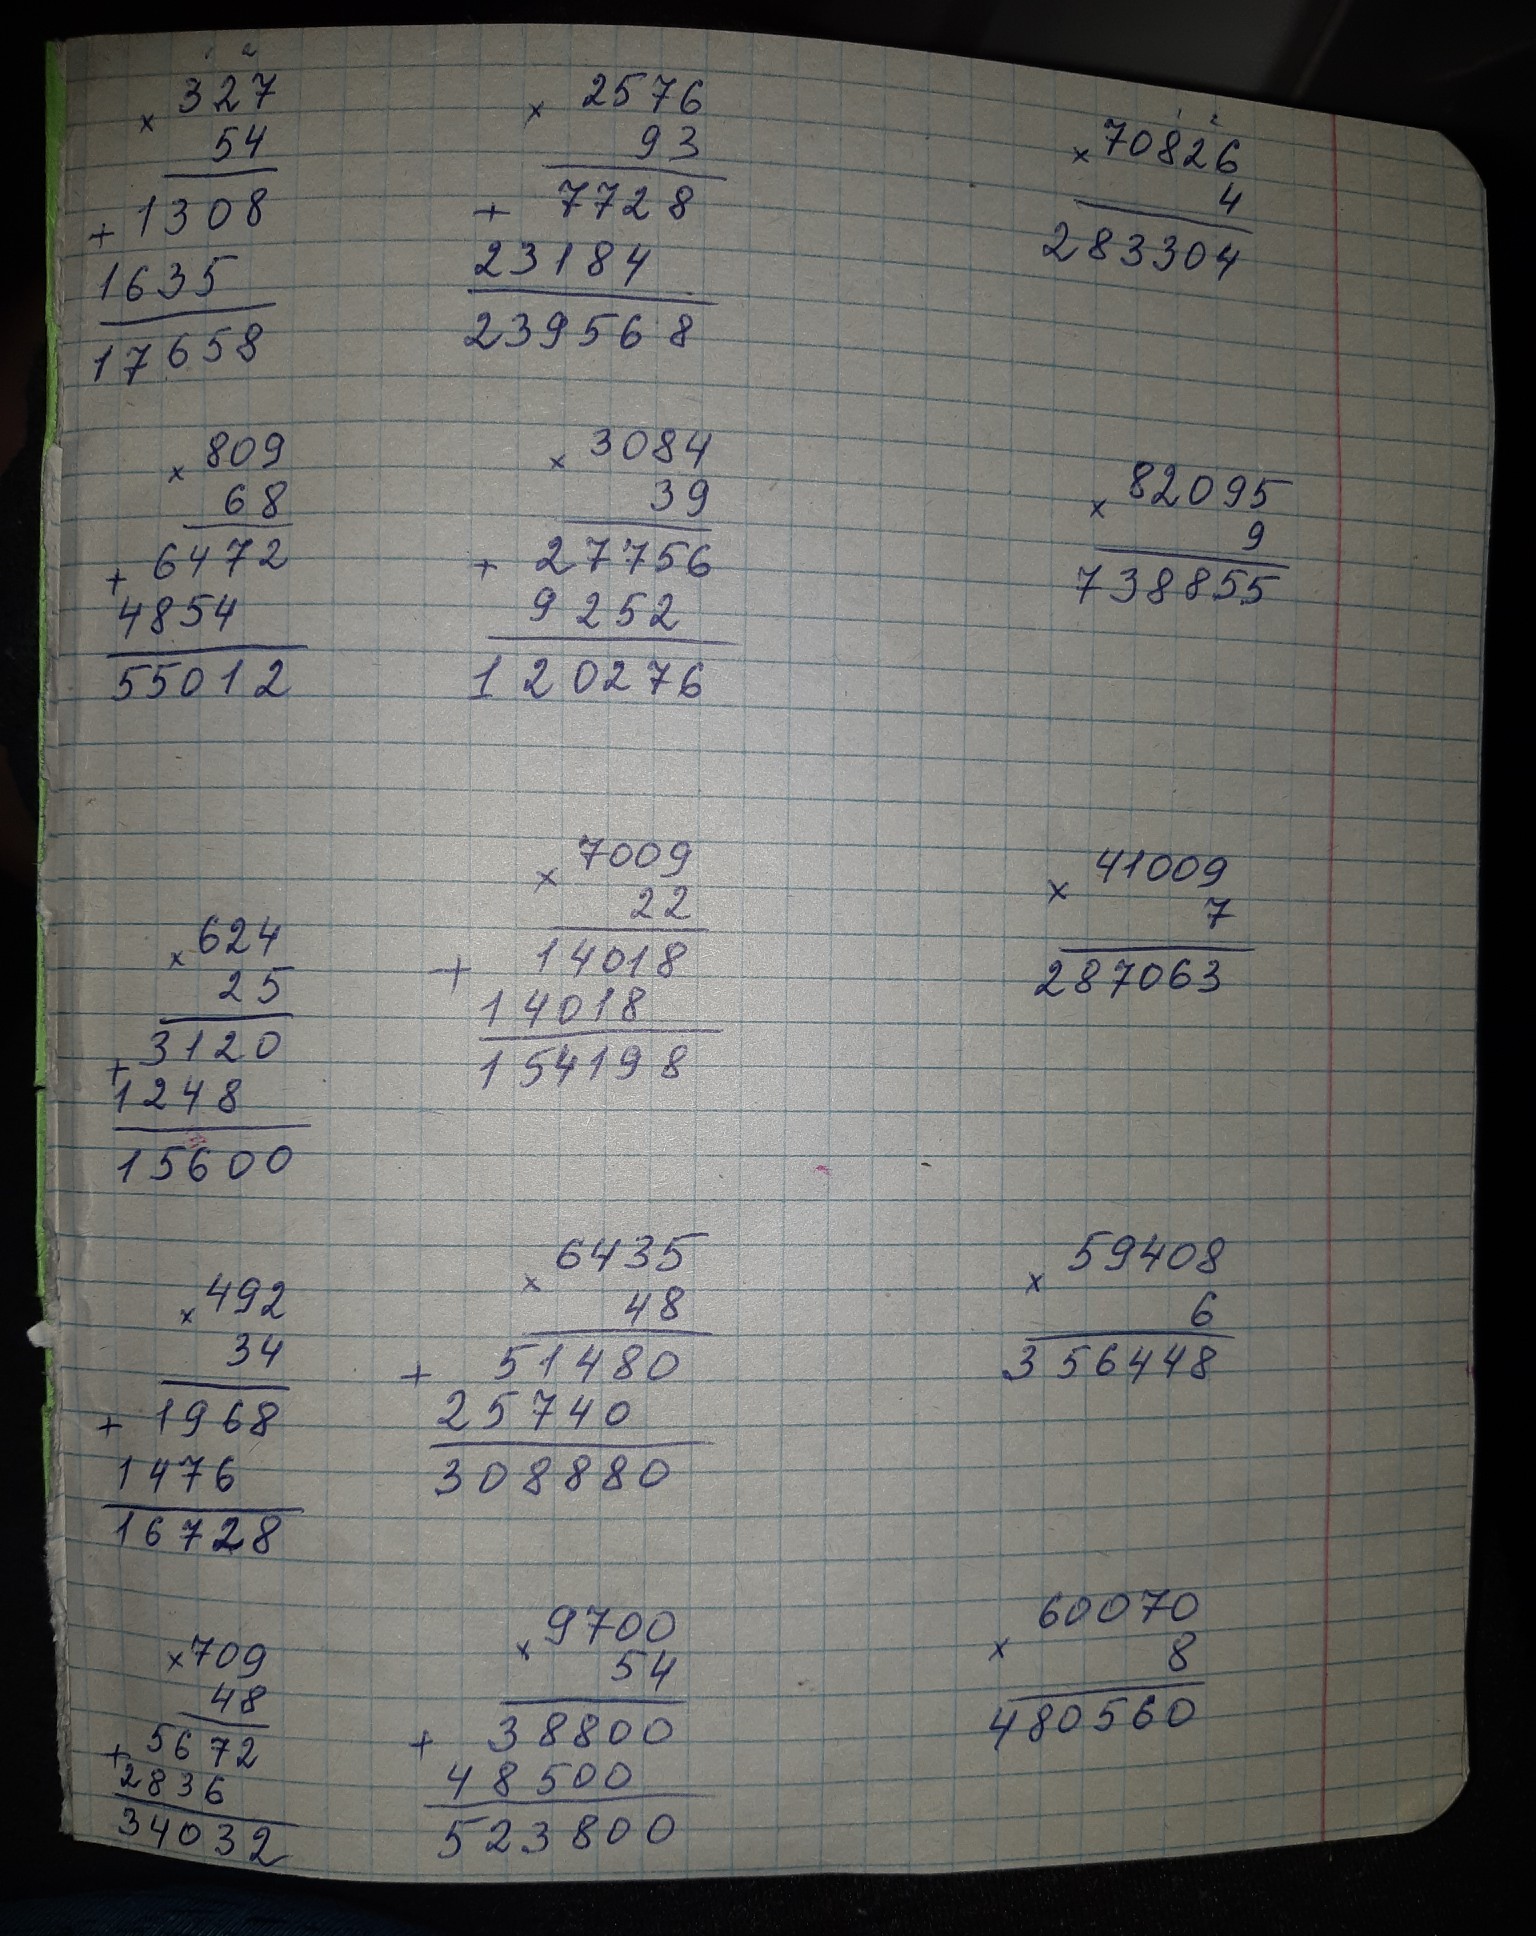 × 327
54
+ 1308
1635
17658
× 2576
93
+ 7728
23184
239568
1 2
× 70826
4
283304
× 809
68
+ 6472
4854
55012
× 3084
39
+ 27756
9252
120276
× 82095
9
738855
× 624
25
+ 3120
1248
15600
× 7009
22
+ 14018
14018
154198
× 41009
7
287063
× 492
34
+ 1968
1476
16728
× 6435
48
+ 51480
25740
308880
× 59408
6
356448
× 709
48
+ 5672
2836
34032
× 9700
54
+ 38800
48500
523800
× 60070
8
480560